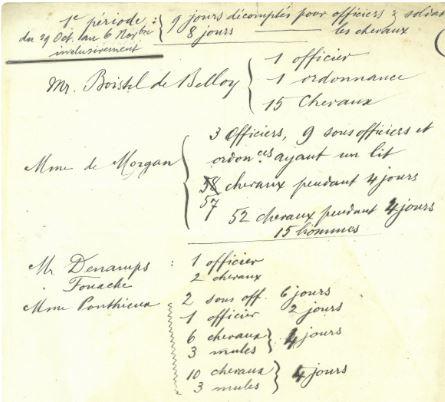 1e période : 9 jours décomptés pour officiers & soldats
du 29 Oct. au 6 Novbre 8 jours — les chevaux
inclusivement
Mr. Boistel de Belloy
1 officier
1 ordonnance
15 chevaux
Mme de Morgan
3 officiers, 9 sous officiers et
ordon.ces ayant un lit
58 chevaux pendant 4 jours
57
52 chevaux pendant 4 jours
15 hommes
Mr Denamps : 1 officier
Fouache 2 chevaux
Mme Ponthieux 2 sous off. 6 jours
1 officier 2 jours
6 chevaux } 4 jours
3 mules
10 chevaux } 4 jours
3 mules